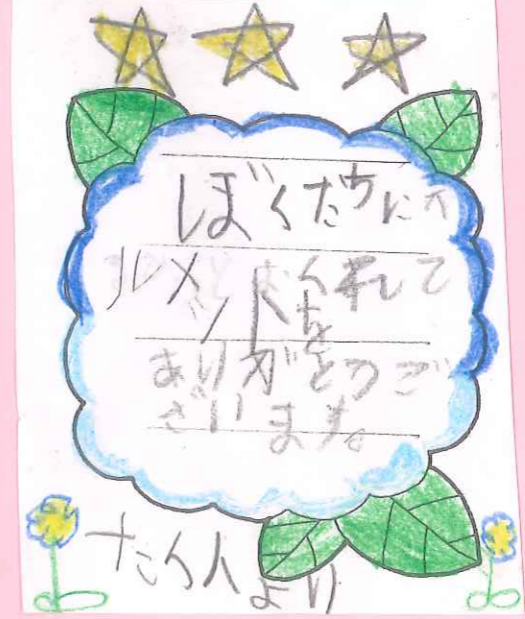 ぼくたちにヘ
ルメットをくれて
ありがとうご
ざいます。
より